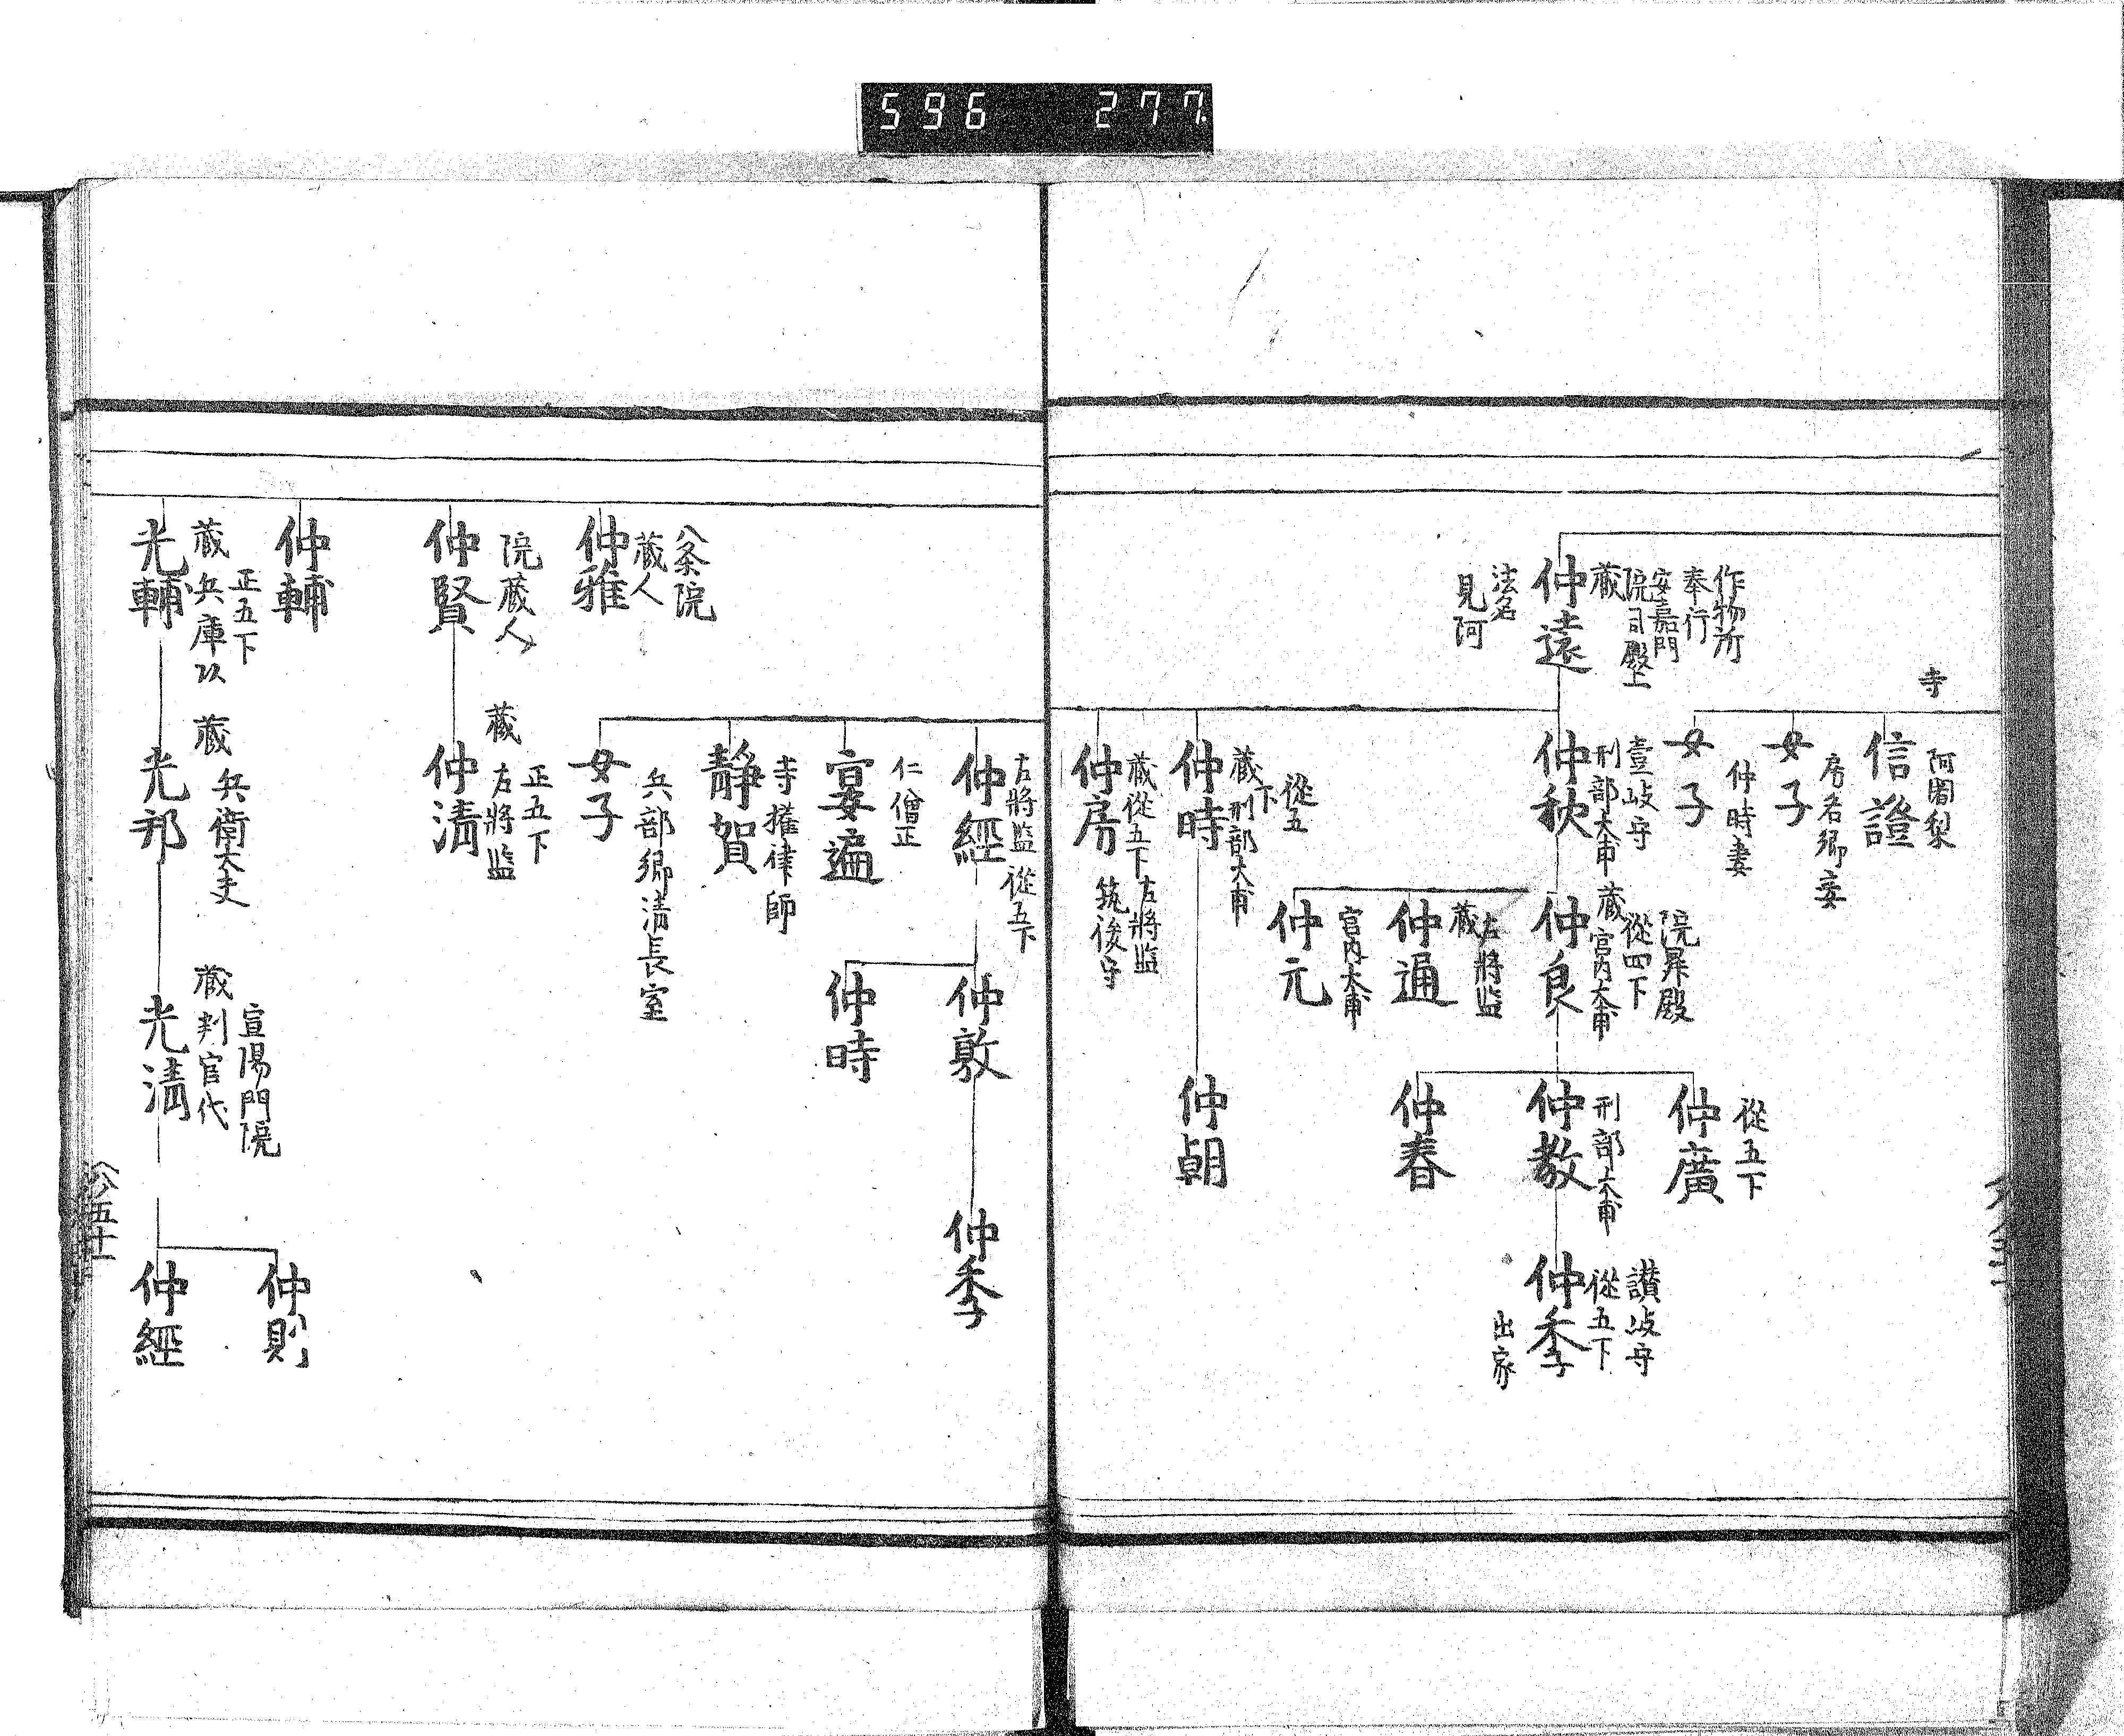 596 277
寺
阿闍梨
信證
房名卿妾
女子
仲時妻
女子
作物所
奉行
安嘉門
院司殿上
蔵
仲遠
法名
見阿
壹岐守
刑部大甫
仲秋
院昇殿
從四下
蔵宮内大甫
仲良
左將監
蔵
仲通
宮内大甫
仲元
從五下
仲廣
刑部大甫
仲教
仲春
讃岐守
從五下
仲季
出家
從五
下
蔵刑部大甫
仲時
仲朝
蔵從五下左將監
筑後守
仲房
右將監從五下
仲經
仲敦
仲季
仲時
仁僧正
宴遍
寺權律師
靜賀
兵部卿清長室
女子
八条院
蔵人
仲雅
院蔵人
仲賢
蔵
正五下
左將監
仲清
仲輔
正五下
蔵兵庫
光輔
蔵兵衛大夫
光邦
宣陽門院
蔵判官代
光清
仲則
仲經
五十一